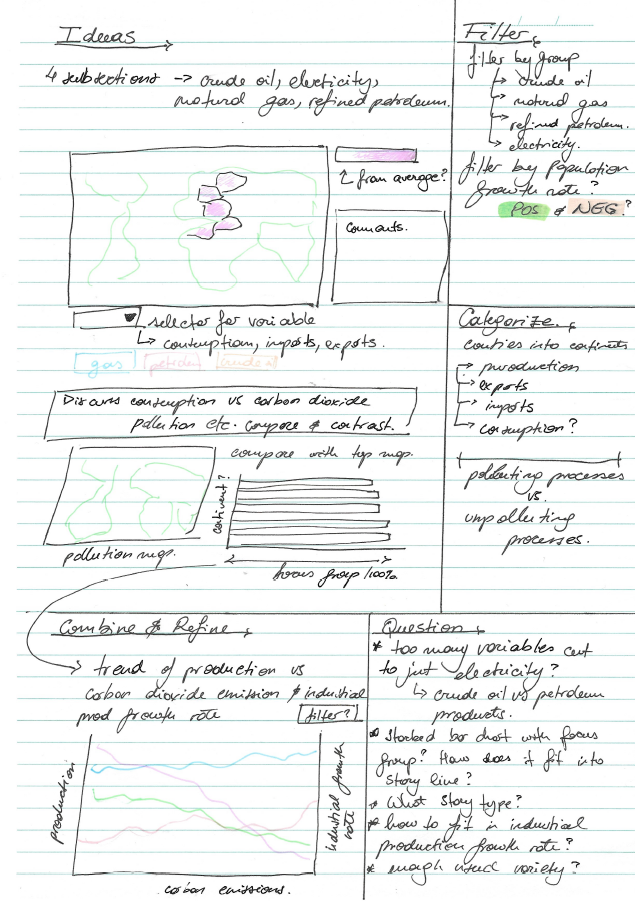 Ideas
4 subsections → crude oil, electricity,
natural gas, refined petroleum.
from average?
Comments.
selector for variable
↳ consumption, imports, exports.
gas
crude o
Discuss consumption vs carbon dioxide
pollution etc. compare & contrast.
compare with top map.
pollution map.
continent?
focus group /100%
Filter
filter by group
↳ crude oil
↳ natural gas
↳ refined petroleum.
↳ electricity.
filter by population
growth rate?
POS & NEG?
Categorize
countries into continents
→ production
→ exports
→ imports
→ consumption?
polluting processes
vs.
unpolluting
processes.
Combine & Refine
→ trend of production vs
carbon dioxide emission & industrial
prod growth rate
filter?
production
industrial growth
rate
carbon emissions.
Question
* too many variables cut
to just electricity?
↳ crude oil vs petroleum
products.
* Stacked bar chart with focus
group? How does it fit into
story line?
* What story type?
* how to fit in industrial
production growth rate?
* enough visual variety?